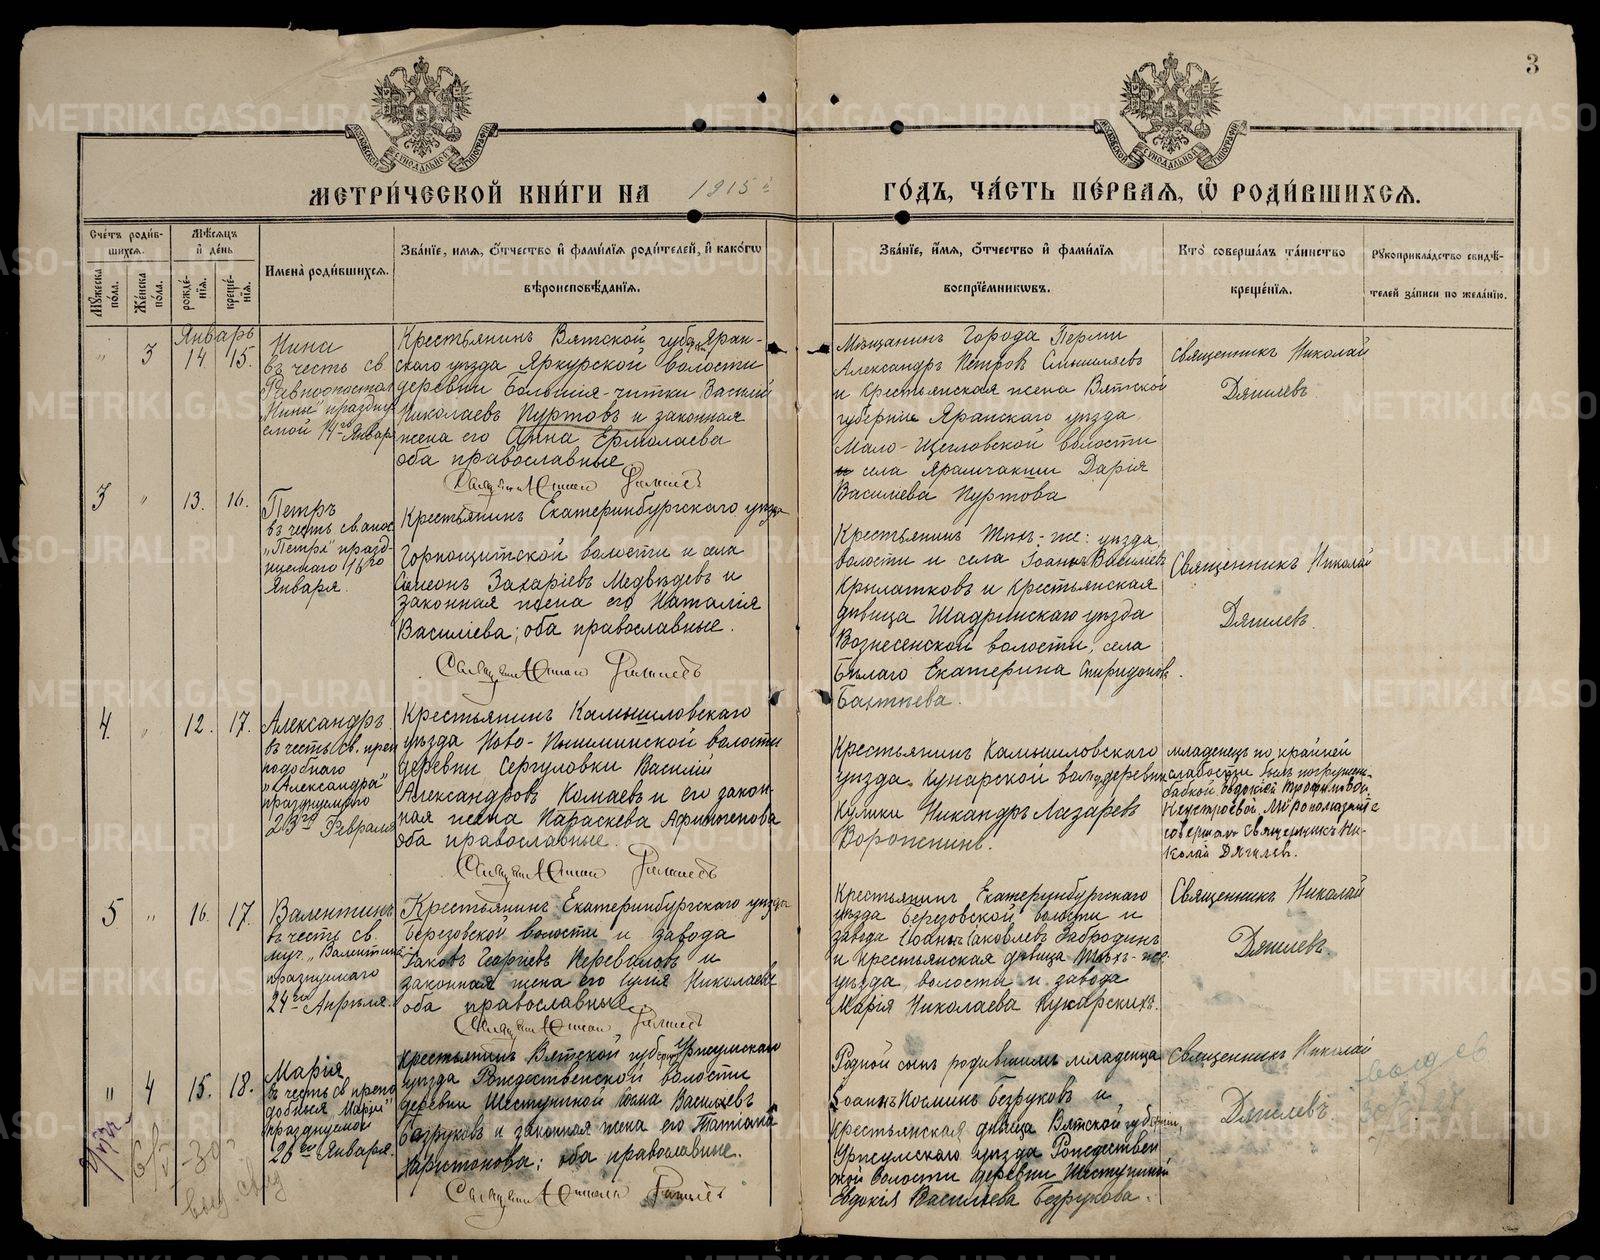 3
МЕТРИ́ЧЕСКОЙ КНИ́ГИ НА 1915 г.
ГО́ДЪ, ЧА́СТЬ ПЕ́РВАЯ, Ѽ РОДИ́ВШИХСЯ.
Сче́тъ роди́вшихся.
Мѣ́сяцъ и҆ де́нь
Му́жеска по́ла.
Же́нска по́ла.
рожде́нїя.
креще́нїя.
И҆мена̀ роди́вшихся.
Зва́нїе, и҆́мя, ѻ҆́тчество и҆ фами́лїя роди́телей, и҆ како́гѡ
вѣроисповѣ́данїя.
Зва́нїе, и҆́мя, ѻ҆́тчество и҆ фами́лїя
воспрїе́мниковъ.
Кто̀ соверша́лъ та́инство
креще́нїя.
Рукоприкла́дство свидѣ́-
телей за́писи по жела́нїю.
Январь
" 3 14 15.
Нина
въ честь св.
Равноапостол
Нины праздну
емой 14го Января
Крестьянинъ Вятской губ. Яран-
скаго уѣзда Яркурской волости
деревни Большія-читки Василій
Николаевъ Пуртовъ и законная
жена его Анна Ермолаева
оба православные
Мѣщанинъ Города Перми
Александръ Петровъ Смышляевъ
и крестьянская жена Вятской
губерніи Яранскаго уѣзда
Мало-Щегловской волости
села Дарія
Василіева Пуртова
Священникъ Николай
Дягилевъ.
3 " 13. 16.
Петръ
въ честь св. апос.
"Петра" празд-
нуемаго 16го
Января.
Крестьянинъ Екатеринбургскаго уѣзда
Горнощитской волости и села
Симеонъ Захаріевъ Медвѣдевъ и
законная жена его Наталія
Василіева; оба православные.
Крестьянинъ Тѣхъ-же: уѣзда
волости и села Іоаннъ Василіевъ
Крылатковъ и Крестьянская
дѣвица Шадринскаго уѣзда
Вознесенской волости, села
Бѣлаго Екатерина Спиридонов.
Священникъ Николай
Дягилевъ.
4. " 12. 17.
Александръ
въ честь св. преп
подобнаго
"Александра"
празднуемаго
23го Февраля
Крестьянинъ Камышловскаго
уѣзда Ново-Пышминской волости
деревни Сергуловки Василій
Александровъ Комаевъ и его закон-
ная жена Параскева
оба православные.
Крестьянинъ Камышловскаго
уѣзда Кунарской вол. деревни
Кулики Никандръ Лазаревъ
Воропаинъ.
младенецъ по крайней
слабости былъ погружен
бабкой Евдокіей Трофимовой
Муропомазаніе
совершалъ Священникъ Ни-
колай Дягилевъ.
5 " 16. 17.
Валентинъ
въ честь св.
муч. "Валентина"
празднуемаго
24го Апрѣля.
Крестьянинъ Екатеринбургскаго уѣзда
Березовской волости и завода
Іаковъ Георгіевъ Переваловъ и
законная жена его Юлія Николаева
оба православные.
Крестьянинъ Екатеринбургскаго
уѣзда Березовской волости и
завода Іоаннъ Іаковлевъ Забродинъ
и крестьянская дѣвица Тѣхъ-же
уѣзда волости и завода
Марія Николаева Кукарскихъ.
Священникъ Николай
Дягилевъ.
" 4 15. 18.
Марія
въ честь св. препо
добныя "Маріи"
празднуемой
26го Января.
Крестьянинъ Вятской губерніи Уржумскаго
уѣзда Рождественской волости
деревни Шестуниной Козма Василіевъ
Безруковъ и законная жена его Татіана
Харитонова; оба православные.
Родной сынъ родившимъ младенца
Іоаннъ Косминъ Безруковъ и
крестьянская дѣвица Вятской губерніи,
Уржумскаго уѣзда Рождествен
ной волости деревни Шестуниной
Евдокія Василіева Безрукова.
Священникъ Николай
Дягилевъ.